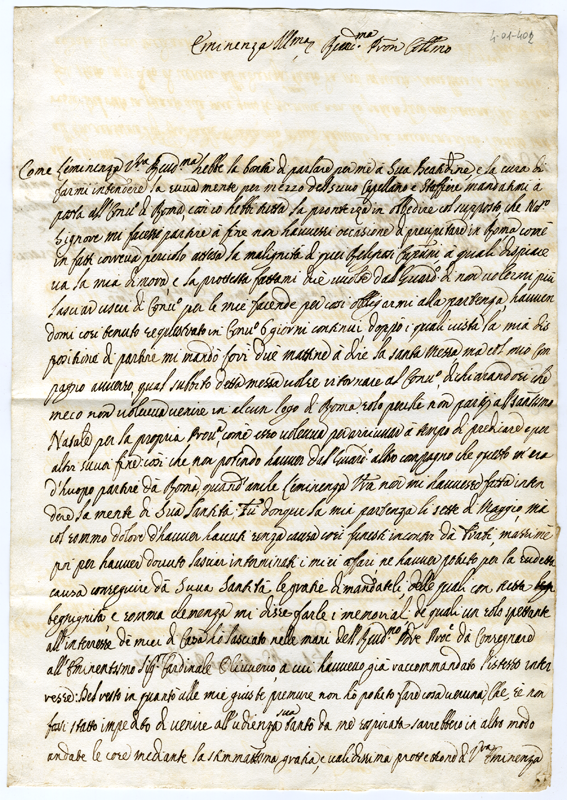 4-01-402
Eminenza Ill.ma e Rev.ma Pron Coll.mo
Come l'eminenza V.ra Reud.ma hebbe la bontà di parlare per me à Sua Beatd.ine, e la cura di
farmi intendere la suua mente per mezzo del suuo Capellano e Staffiere mandatimi a
posta all Conu.o di Roma, così io hebbi tutta la prontezza in obbedire col supposto che No.ro
Signore mi facesse partire à fine non hauessi occasione di precipitare in Roma com'è
in fatti correua pericolo attesa la malignità di que Religiosi a quali dispiace
ua la mia dimora e la protesta fattami due uuolte dal Guar.o di non uolermi più
lasciar uscire di Conu.o per le mie facende per così obligarmi alla partenza hauen
domi così tenuto sequestrato in Conu.o 6 giorni continui doppo i quali uista la mia dis
positione di partire mi mandò fuori due mattine à dire la santa Messa ma col mio Com
pagno auuerso, qual subbito detta messa uolse ritornare al Conu.o dichiarandosi che
meco non uoleua uenire in alcun logo di Roma solo perche non partij al Santissimo
Natale per la propria Prou.a com'esso uoleua per arriuare à tempo di predicare e per
altri suuoi fini: così che non potendo hauuer dal Guar.o altro compagno che questo m'era
d'huopo partire dà Roma, quand'anche l'eminenza V.ra non mi hauesse fatta inten
dere la mente di Sua Santità. Fù donque la mia partenza li sette di Maggio, mà
col sommo dolore d'hauuer hauuti senza causa così funesti incontri dà Frati, massime
poi per hauuer douuto lasciar interminati i miei affari ne hauuer potuto per la sudetta
causa conseguire dà Suua Santità le gratie di mandateli, delle quali con tutta
begnignità e somma clemenza mi disse farle i memoriali: de quali un solo spettante
all'interesse de miei di Casa hò lasciato nelle mani dell Reud.mo P.dre Proc.e dà Consegnare
all'Eminentissimo Sig.r Cardinale Oliuuerio, à cui haueuo già raccommandato l'istesso inter
resse: Del resto in quanto alle mie giuste premure non hò potuto fare cosa ueruna, che se non
fossi stato impedito di uenire all'udienza sua santo da me sospirata sarrebbero in altro modo
andate le cose mediante la stimmatissima gratia, e ualidissima protettione di V.ra Eminenza